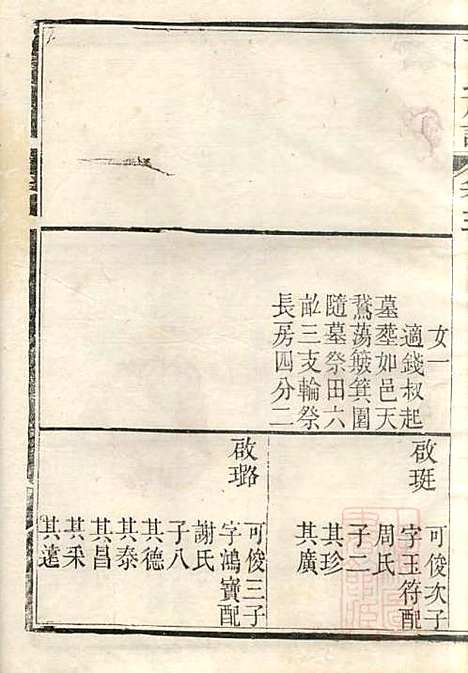 女一
適錢叔起
墓塟如邑天
鵞蕩簸箕圍
隨墓祭田六
畝三支輪祭
長房四分二
啟珽
可俊次子
字玉符配
周氏
子二
其珍
其廣
啟璐
可俊三子
字鴻寶配
謝氏
子八
其德
其泰
其昌
其采
其遠